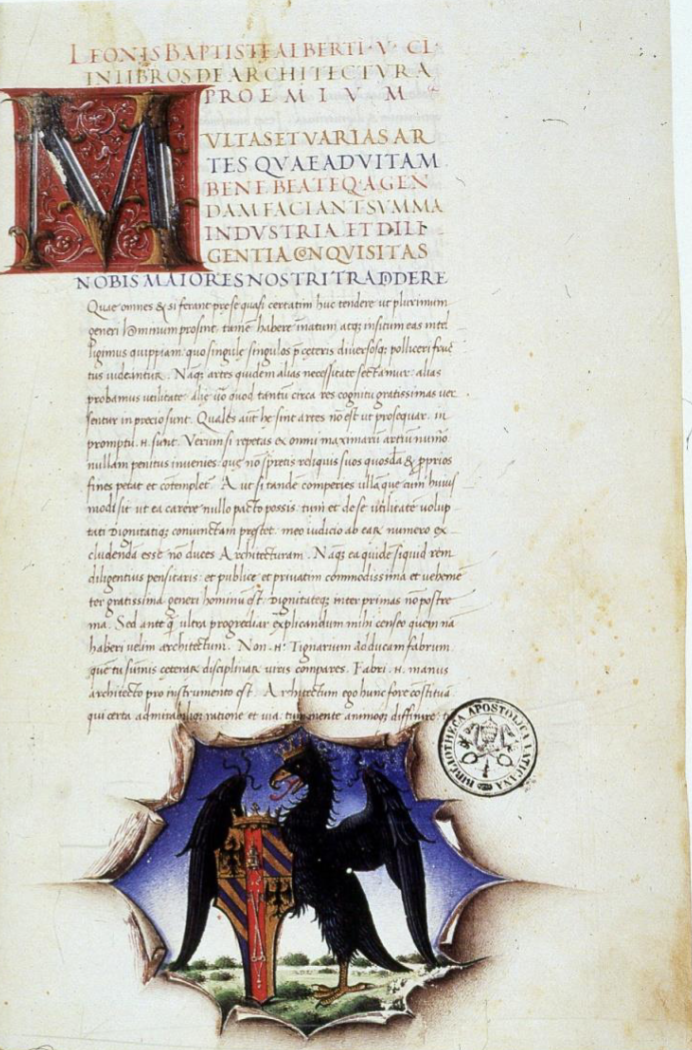 LEONIS BAPTISTE ALBERTI · V · CI ·
IN LIBROS DE ARCHITECTVRA
PROEMIVM
MVLTAS ET VARIAS AR
TES QVAE AD VITAM
BENE BEATEQ· AGEN
DAM FACIANT SVMMA
INDVSTRIA ET DILI
GENTIA CONQVISITAS
NOBIS MAIORES NOSTRI TRADIDERE
Quae omnes & si ferant prese quasi certatim huc tendere ut plurimum
generi hominum prosint. tamē habere īnatum atq; insitum eas intel
ligimus quippiam: quo singule singulos p̄ ceteris diversosq; polliceri fruc
tus videantur. Naq; artes quidem alias necessitate sectamur: alias
probamus utilitate. alię v̄o quod tantū circa res cognitu gratissimas ver
sentur in precio sunt. Quales aūt hę sint artes nō est ut prosequar. in
promptu .n. sunt. Verum si repetas ex omni maximarū artiū numō
nullam penitus invenies: quę nō spretis reliquis suos quosdā & pprios
fines petat et cōtemplet. A ut si tandē comperies ullā que cum huius
modi sit ut ea carere nullo pacto possis. tum et de se utilitatē volup
tati dignitatiq; coniunctam prestet. meo iudicio ab eaꝝ numero ex
cludendā esse nō duces Architecturam. Naq; ea quidē siquid rem
diligentius pensitaris: et publice et privatim commodissima et vehemē
ter gratissima generi hominū est. Dignitateq; inter primas nō postre
ma. Sed ante q̄ ultra progrediar explicandum mihi censeo quem nā
haberi velim architectum. Non .n. Tignarium adducam fabrum
quē tu sūmis ceteraꝝ disciplinaꝝ viris compares. Fabri .n. manus
architecto pro instrumento est. Architectum ego hunc fore cōstituā
qui certa admirabiliq; ratione et via. tum mente animoq; diffinire
BIBLIOTHECA APOSTOLICA VATICANA